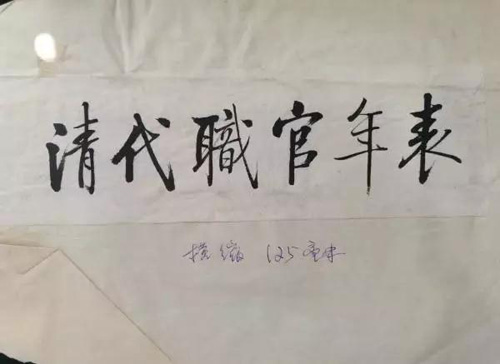 清代職官年表
横缩 125毫米